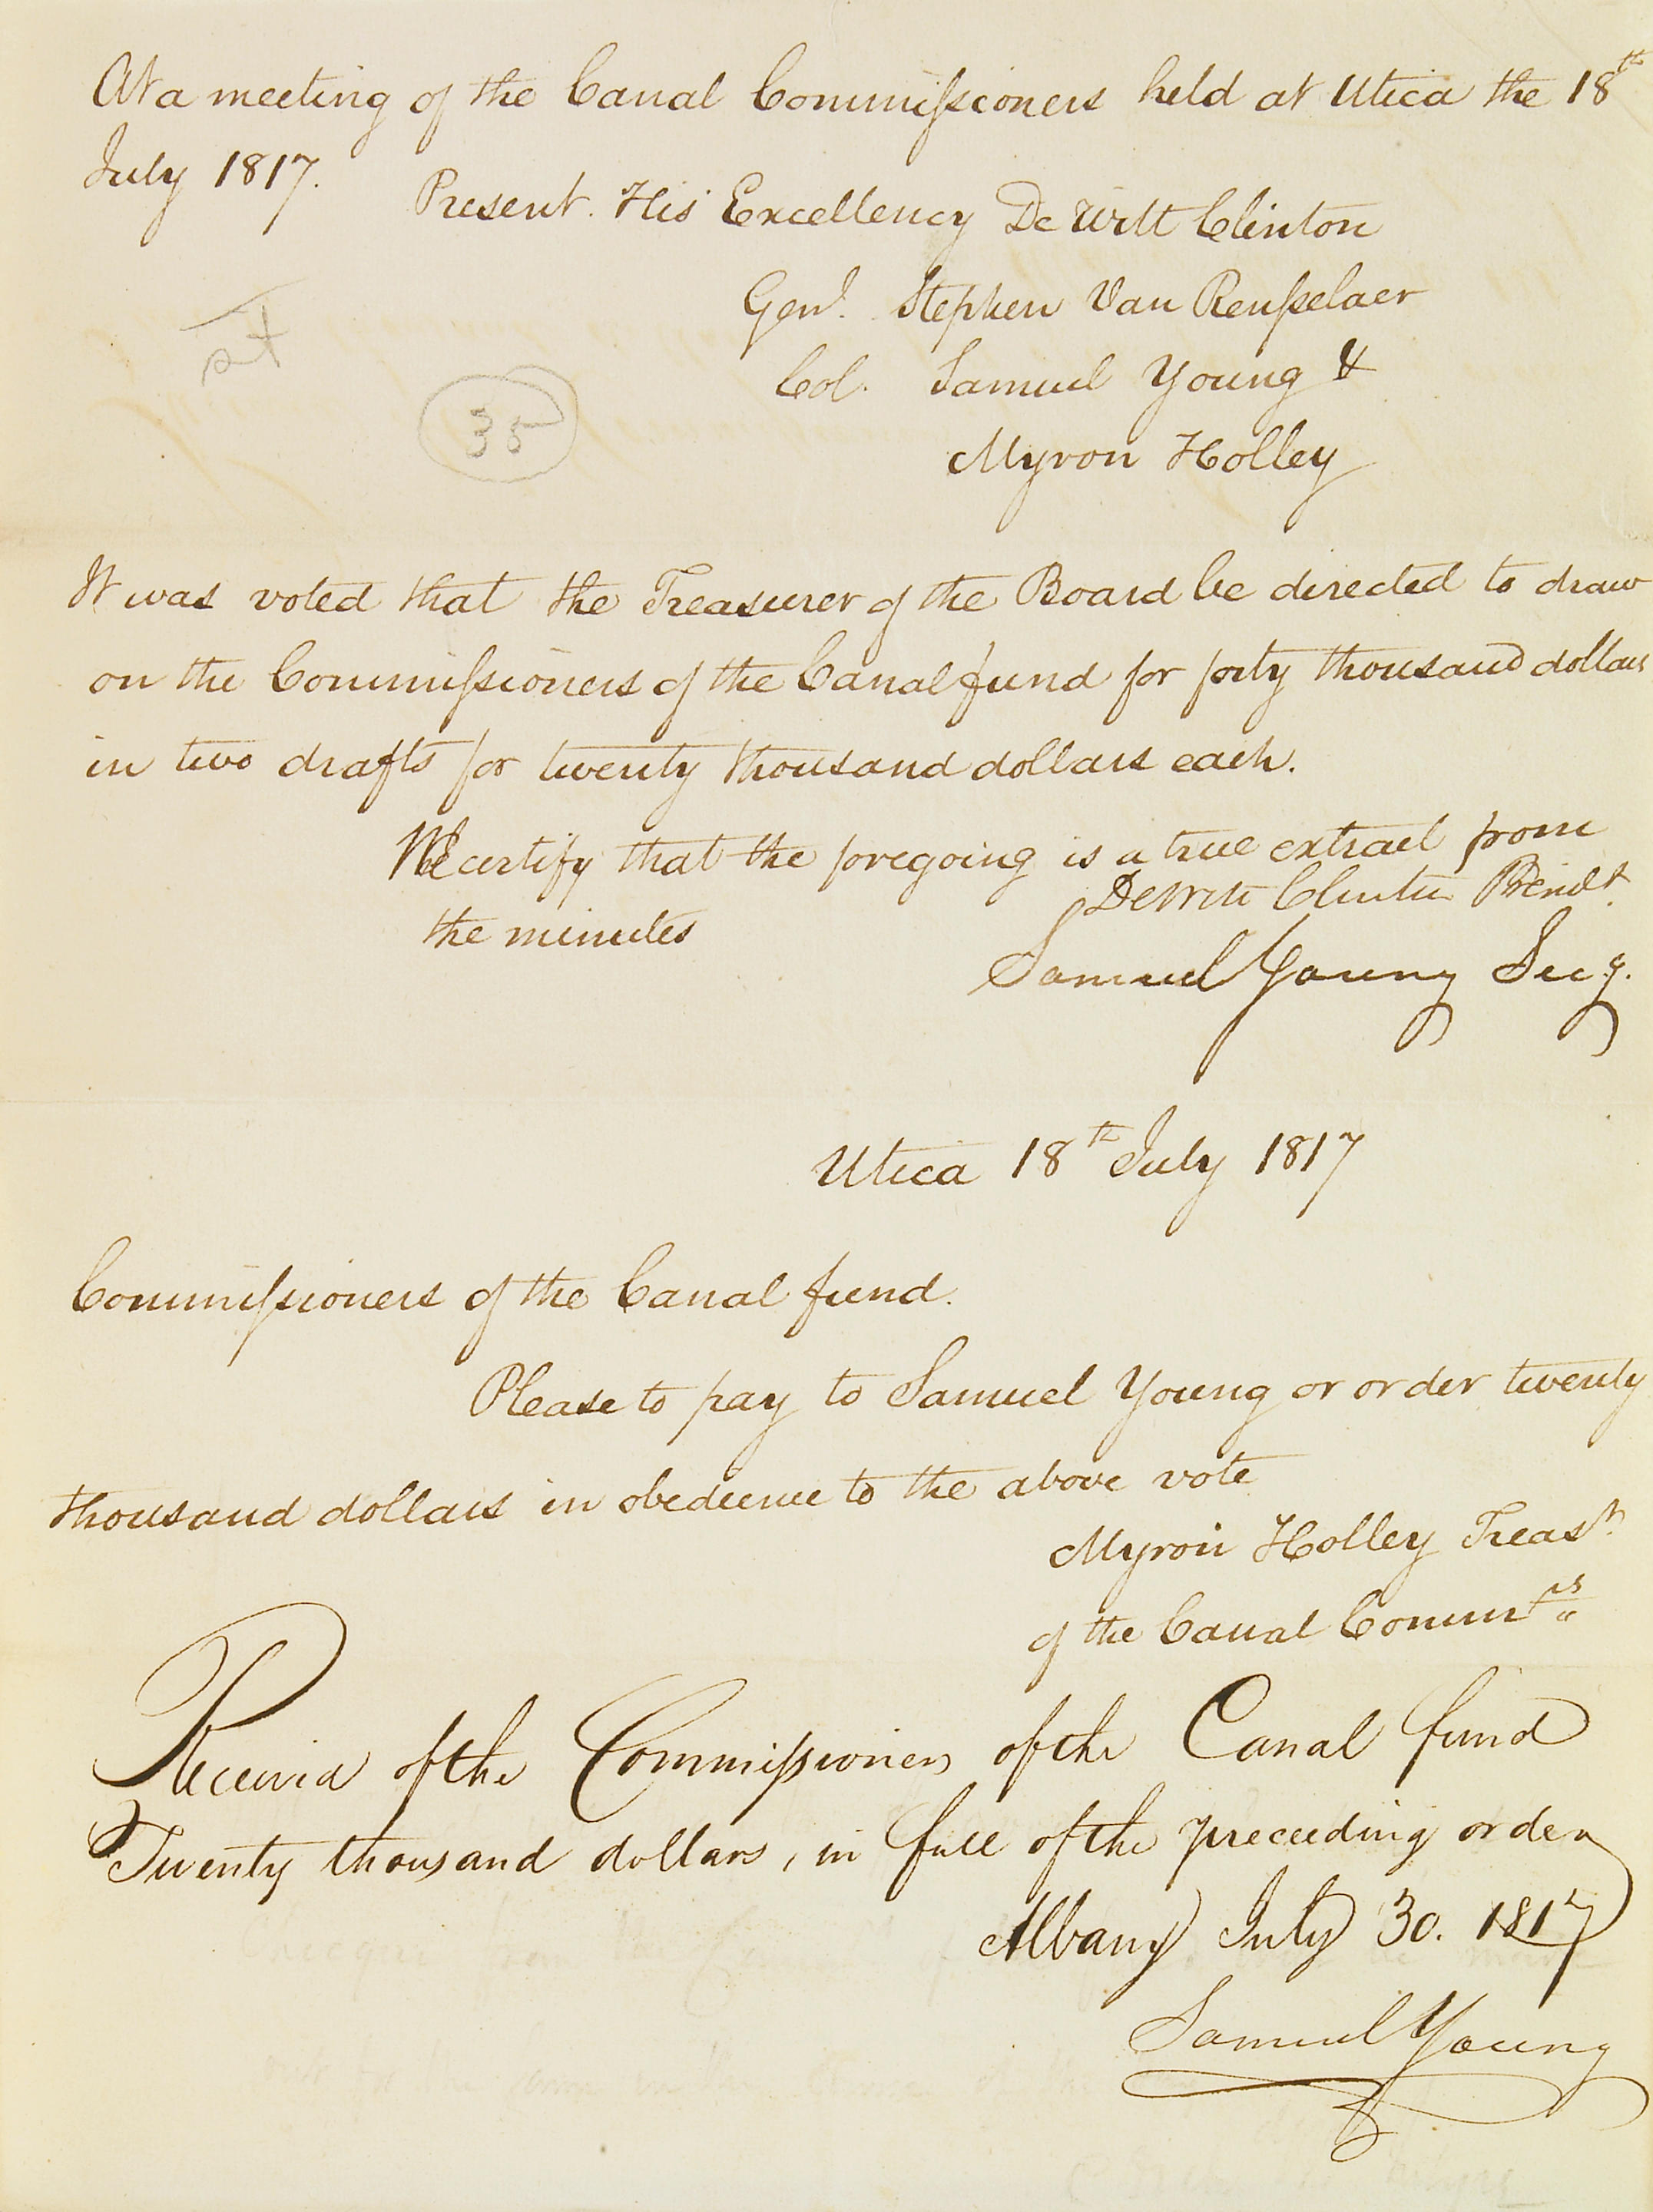 At a meeting of the Canal Commissioners held at Utica the 18th
July 1817.
Present. His Excellency De Witt Clinton
Genl. Stephen Van Rensselaer
Col. Samuel Young &
Myron Holley
35
It was voted that the Treasurer of the Board be directed to draw
on the Commissioners of the Canal fund for forty thousand dollars
in two drafts for twenty thousand dollars each.
We certify that the foregoing is a true extract from
the minutes
DeWitt Clinton Presidt.
Samuel Young Secy.
Utica 18th July 1817
Commissioners of the Canal fund.
Please to pay to Samuel Young or order twenty
thousand dollars in obedience to the above vote
Myron Holley Treasr.
of the Canal Commrs
Received of the Commissioners of the Canal fund
Twenty thousand dollars, in full of the preceeding order
Albany July 30. 1817
Samuel Young